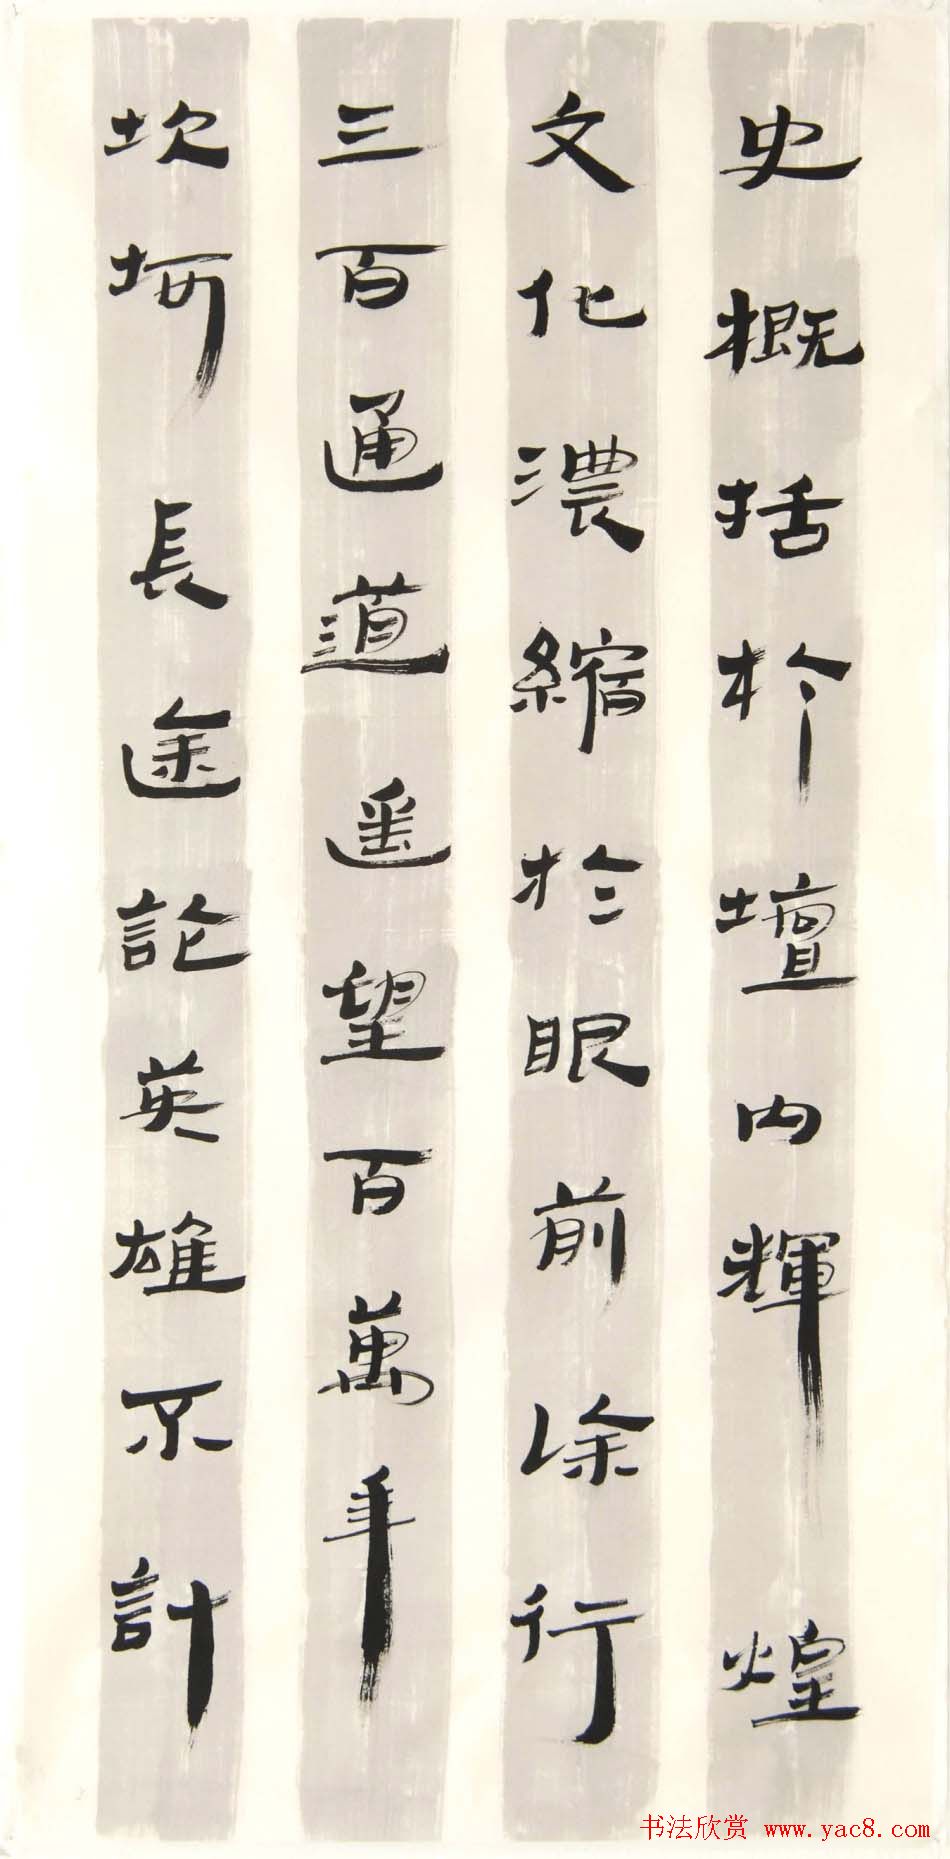 史概括於壇内輝煌
文化濃縮於眼前徐行
三百通道遥望百萬年
坎坷長途論英雄不計
书法欣赏 www.yac8.com